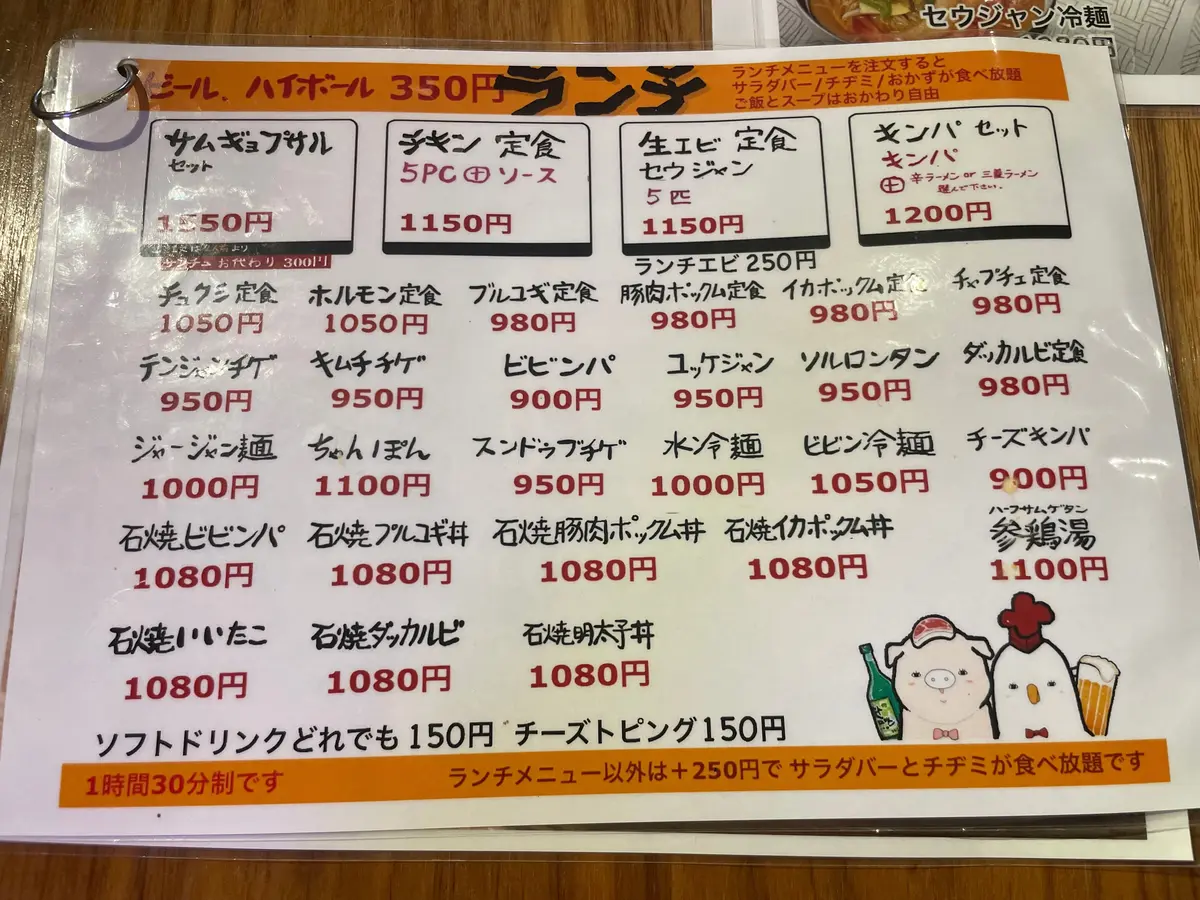 セウジャン冷麺
1080円
ビール、ハイボール 350円
ランチ
ランチメニューを注文すると
サラダバー/チヂミ/おかずが食べ放題
ご飯とスープはおかわり自由
サムギョプサル
セット
1550円
お代わり 300円
チキン 定食
5PC ㊉ ソース
1150円
生エビ 定食
セウジャン
5匹
1150円
ランチエビ 250円
キンパ セット
キンパ
㊉ 辛ラーメン or 三養ラーメン
選んで下さい。
1200円
チュクミ定食 ホルモン定食 プルコギ定食 豚肉ポックム定食 イカポックム定食 チャプチェ定食
1050円 1050円 980円 980円 980円 980円
テンジャンチゲ キムチチゲ ビビンパ ユッケジャン ソルロンタン ダッカルビ定食
950円 950円 900円 950円 950円 980円
ジャージャン麺 ちゃんぽん スンドゥブチゲ 水冷麺 ビビン冷麺 チーズキンパ
1000円 1100円 950円 1000円 1050円 900円
ハーフサムゲタン
石焼ビビンパ 石焼プルコギ丼 石焼豚肉ポックム丼 石焼イカポックム丼 参鶏湯
1080円 1080円 1080円 1080円 1100円
石焼いいたこ 石焼ダッカルビ 石焼明太子丼
1080円 1080円 1080円
ソフトドリンクどれでも 150円 チーズトピング150円
1時間30分制です
ランチメニュー以外は＋250円で サラダバーとチヂミが食べ放題です